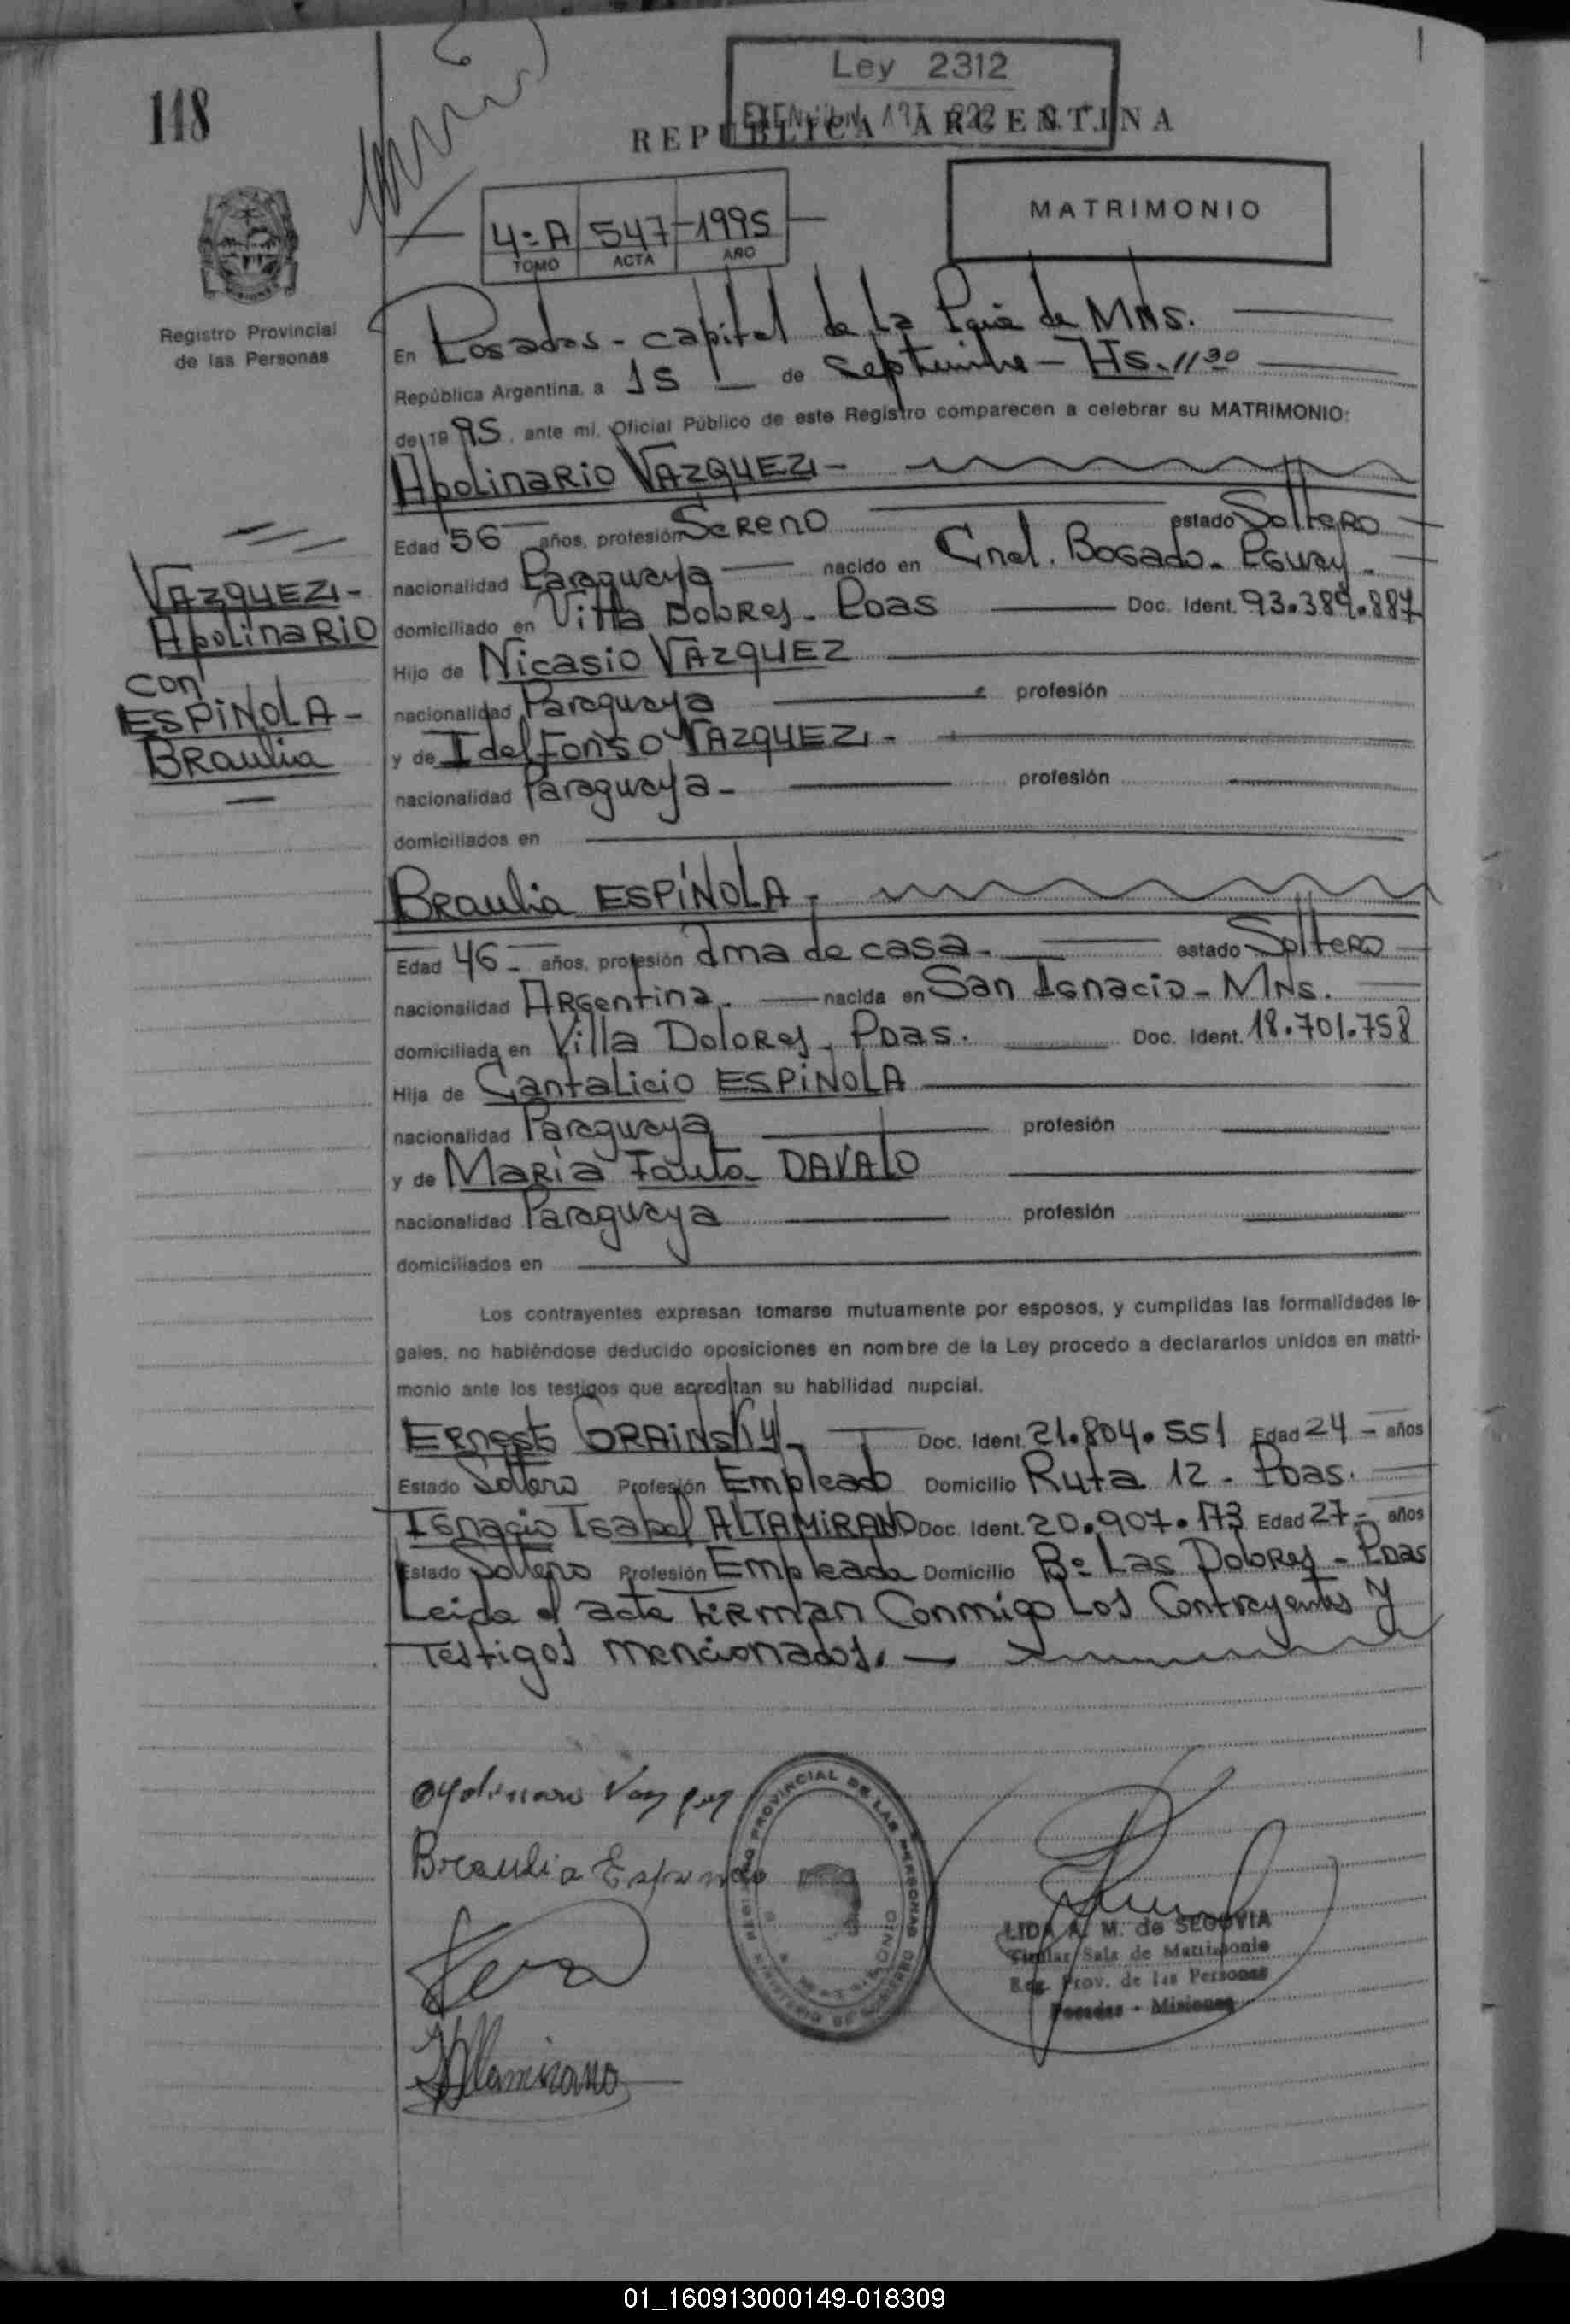 118
Ley 2312
REPUBLICA ARGENTINA
4:A 547 1995
TOMO ACTA AÑO
MATRIMONIO
Registro Provincial
de las Personas
En Posadas - capital de la Pcia de MNS.
República Argentina, a 15 de septiembre - Hs. 11 30
de 19 95, ante mi, Oficial Público de este Registro comparecen a celebrar su MATRIMONIO:
Apolinario VAZQUEZ -
Edad 56 años, profesión Sereno estado Soltero
nacionalidad Paraguaya nacido en Cnel. Bogado - Pguay -
domiciliado en Villa Dolores - Pdas Doc. Ident. 93.389.887
Hijo de Nicasio VAZQUEZ
nacionalidad Paraguaya profesión
y de Idelfonso VAZQUEZ -
nacionalidad Paraguaya - profesión
domiciliados en
VAZQUEZ -
Apolinario
con
ESPINOLA -
Braulia
Braulia ESPÍNOLA -
Edad 46 - años, profesión ama de casa - estado Soltero
nacionalidad Argentina - nacida en San Ignacio - MNS.
domiciliada en Villa Dolores - Pdas. Doc. Ident. 18.701.758
Hija de Cantalicio ESPINOLA
nacionalidad Paraguaya profesión
y de María Fausta DAVALO
nacionalidad Paraguaya profesión
domiciliados en
Los contrayentes expresan tomarse mutuamente por esposos, y cumplidas las formalidades le-
gales, no habiéndose deducido oposiciones en nombre de la Ley procedo a declararlos unidos en matri-
monio ante los testigos que acreditan su habilidad nupcial.
Ernesto Doc. Ident. 21.804.551 Edad 24 - años
Estado Soltero Profesión Empleado Domicilio Ruta 12 - Pdas.
Ignacio Isabel ALTAMIRANO Doc. Ident. 20.907.173 Edad 27 - años
Estado Soltero Profesión Empleada Domicilio B: Las Dolores - Pdas
Leida el acta firman conmigo los contrayentes y
testigos mencionados. -
Braulia Espinola
REGISTRO PROVINCIAL DE LAS PERSONAS
MATRIMONIO
MINISTERIO DE GOBIERNO
LIDA A. M. de SEGOVIA
Titular Sala de Matrimonio
Reg. Prov. de las Personas
Posadas - Misiones
Altamirano
01_160913000149-018309